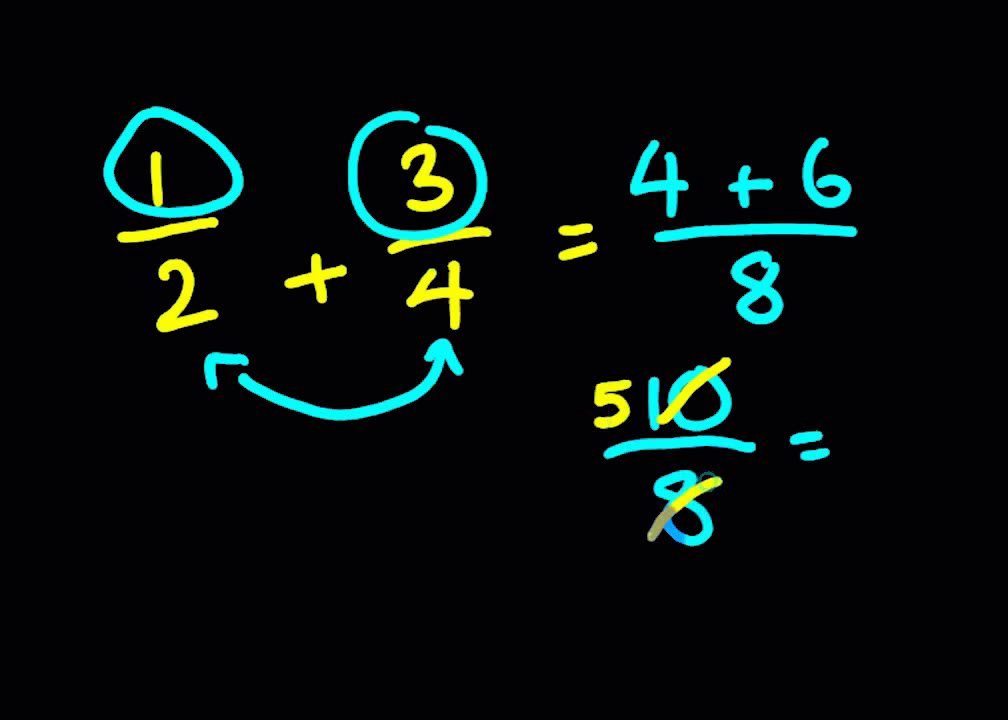 1/2 + 3/4 = (4 + 6)/8
5 10/8 =